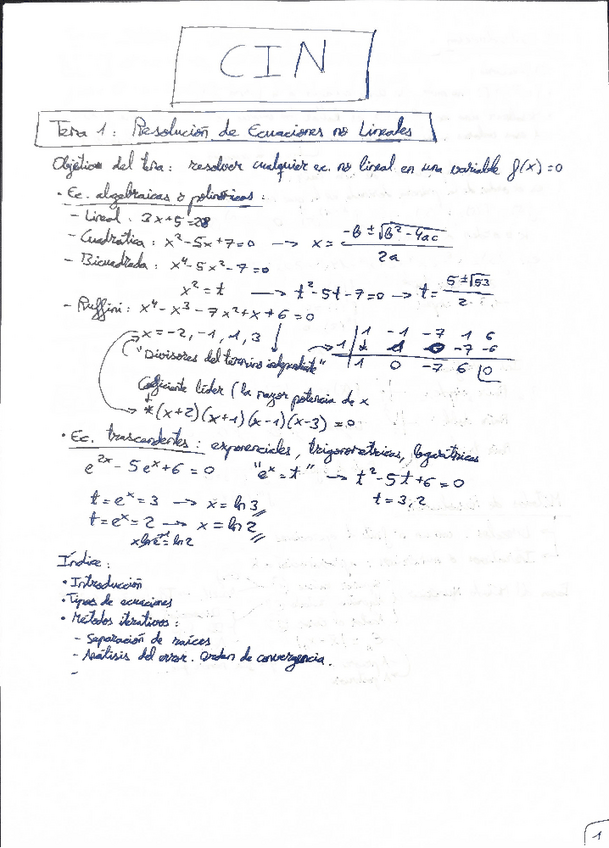 CIN
Tema 1: Resolución de Ecuaciones no Lineales
Objetivo del tema: resolver cualquier ec. no lineal en una variable f(x)=0
• Ec. algebraicas o polinómicas:
- Lineal: 3x+5=28
- Cuadrática: x²-5x+7=0 → x = (-b ± √(b²-4ac)) / 2a
- Bicuadrada: x⁴-5x²-7=0
x²=t → t²-5t-7=0 → t = (5±√53) / 2
- Ruffini: x⁴-x³-7x²+x+6=0
x=-2,-1,1,3
1 -1 -7 1 6
1 -7 -6
1 0 -7 6 0
"Divisores del término independiente"
Coeficiente líder (la mayor potencia de x
*(x+2)(x+1)(x-1)(x-3)=0
• Ec. trascendentes: exponenciales, trigonométricas, logarítmicas
e²ˣ-5eˣ+6=0 "eˣ=t" → t²-5t+6=0
t=3,2
t=eˣ=3 → x=ln3
t=eˣ=2 → x=ln2
Índice:
• Introducción
• Tipos de ecuaciones
• Métodos iterativos:
- Separación de raíces
- Análisis del error. Orden de convergencia.
-
1